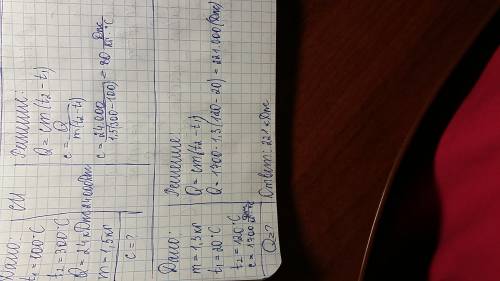 Дано:
t₁ = 100°C
t₂ = 300°C
Q = 24 кДж
m = 1,5 кг
c = ?
СИ
24000 Дж
Решение:
Q = cm(t₂ - t₁)
c = Q / m(t₂ - t₁)
c = 24.000 / 1,5(300 - 100) = 80 Дж / кг · °C
Дано:
m = 1,3 кг
t₁ = 20°C
t₂ = 120°C
c = 1700
Q = ?
Решение:
Q = cm(t₂ - t₁)
Q = 1700 · 1,3 (120 - 20) = 221.000 (Дж)
Ответ: 221 кДж